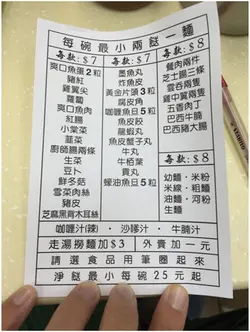 每碗最小兩餸一麵
每款:$7
爽口魚蛋2粒
豬紅
雞翼尖
蘿蔔
爽口魚肉
紅腸
小棠菜
韮菜
廚師腸兩條
生菜
豆卜
鮮冬菇
雪菜肉絲
豬皮
芝麻黑背木耳絲
每款:$7
墨魚丸
炸魚皮
黃金片頭3粒
腐皮角
咖喱魚旦5粒
魚皮餃
龍蝦丸
魚皮蟹子丸
牛丸
牛栢葉
貢丸
蠔油魚旦5粒
每款:$8
餐肉兩件
芝士腸三條
雲吞兩隻
雞中翼兩隻
五香肉丁
巴西牛腩
巴西豬大腸
每款:$8
幼麵・米粉
米線・粗麵
油麵・河粉
生麵
咖喱汁(辣)・沙嗲汁・牛腩汁
走湯撈麵加$3
外賣加一元
請選食品用筆圈起來
淨餸最小每碗25元起